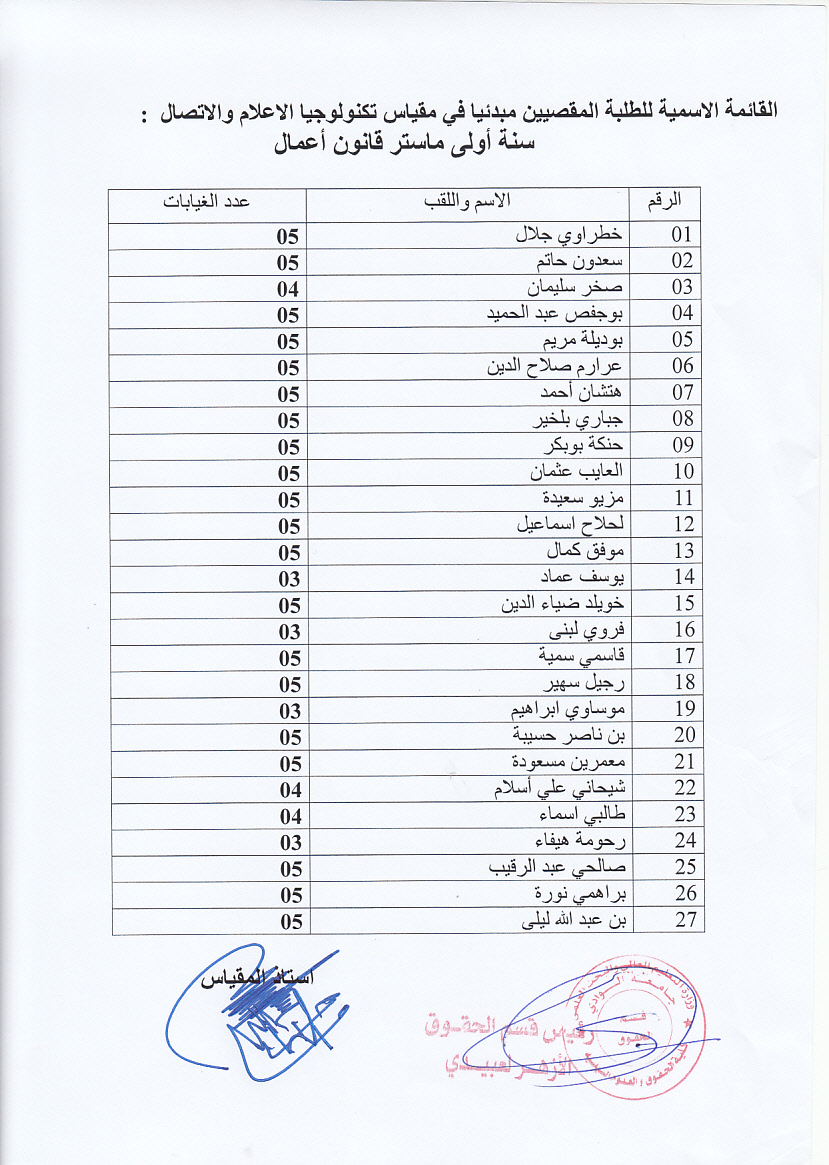 القائمة الاسمية للطلبة المقصيين مبدئيا في مقياس تكنولوجيا الاعلام والاتصال :
سنة أولى ماستر قانون أعمال
الرقم الاسم واللقب عدد الغيابات
01 خطراوي جلال 05
02 سعدون حاتم 05
03 صخر سليمان 04
04 بوجفص عبد الحميد 05
05 بوديلة مريم 05
06 عرارم صلاح الدين 05
07 هتشان أحمد 05
08 جباري بلخير 05
09 حنكة بوبكر 05
10 العايب عثمان 05
11 مزيو سعيدة 05
12 لحلاح اسماعيل 05
13 موفق كمال 05
14 يوسف عماد 03
15 خويلد ضياء الدين 05
16 فروي لبنى 03
17 قاسمي سمية 05
18 رجيل سهير 05
19 موساوي ابراهيم 03
20 بن ناصر حسيبة 05
21 معمرين مسعودة 05
22 شيحاني علي أسلام 04
23 طالبي اسماء 04
24 رحومة هيفاء 03
25 صالحي عبد الرقيب 05
26 براهمي نورة 05
27 بن عبد الله ليلى 05
استاذ المقياس
رئيس قسم الحقوق
الأزهر لعبيدي
وزارة التعليم العالي والبحث العلمي
جامعة الوادي
قسم
الحقوق
كلية الحقوق والعلوم